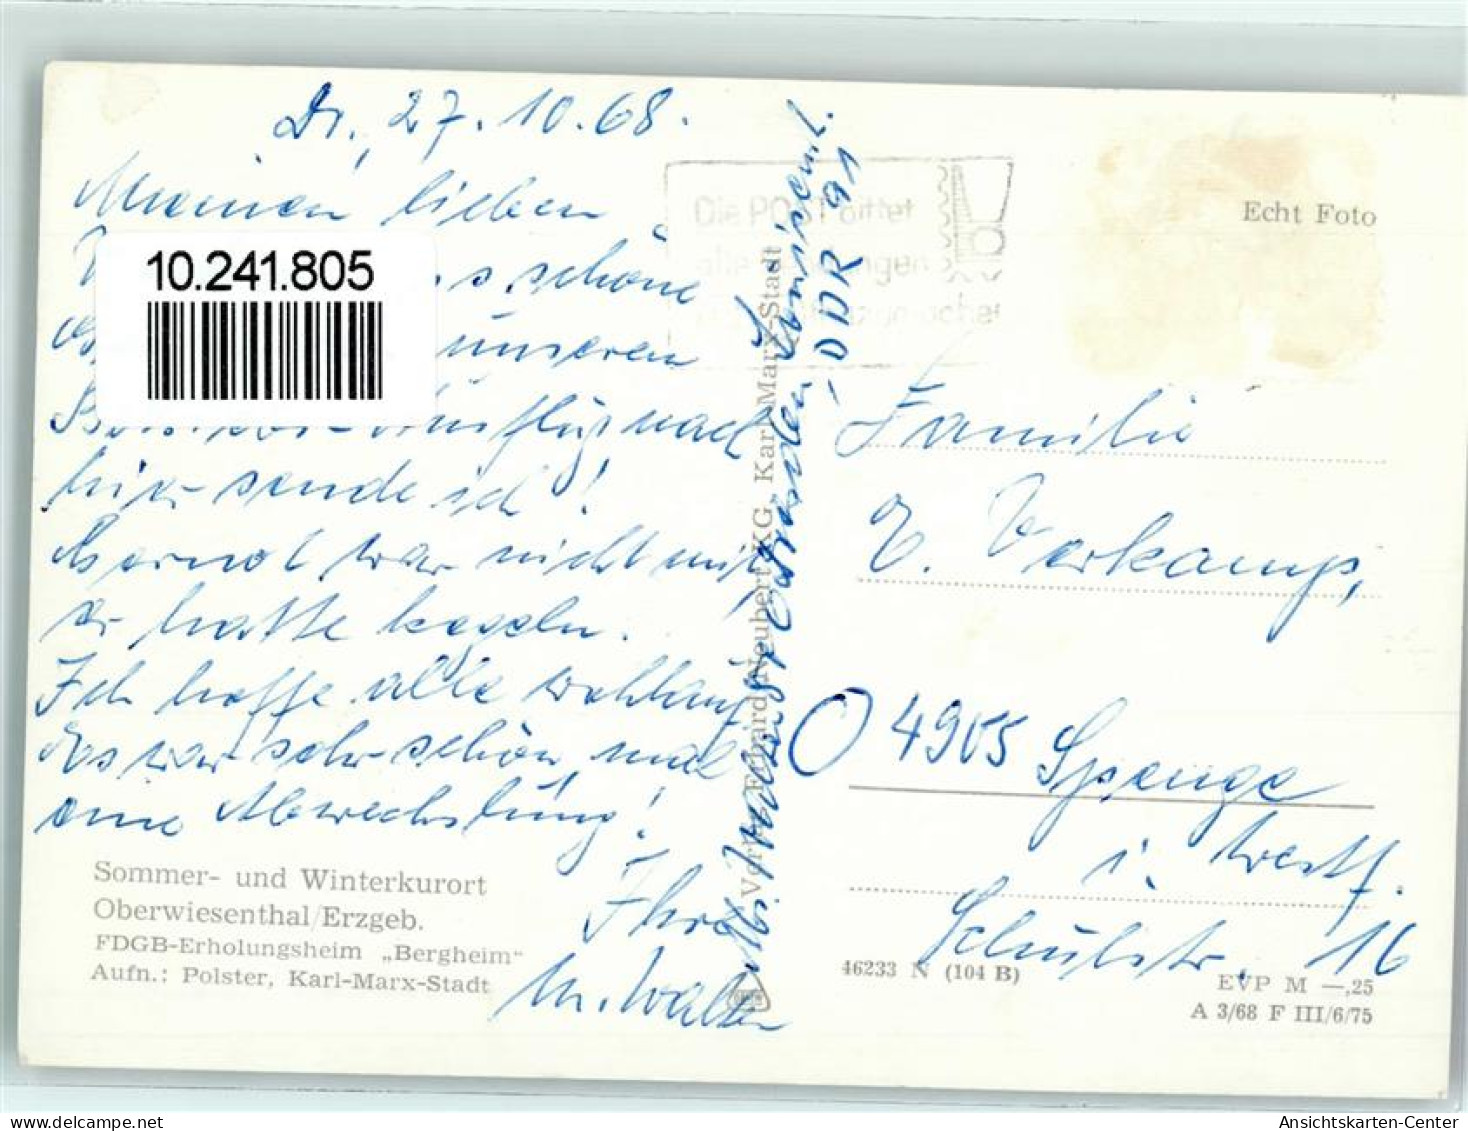 Dr., 27.10.68.
Meinen lieben
10.241.805
schöne
unseren
Ausflug nach
hier sende ich!
Bernot war nicht mit,
er hatte kegeln.
Ich hoffe alle wohlauf
Es war sehr schön, mal
eine Abwechslung!
Ihre
M. Walter
Sommer- und Winterkurort
Oberwiesenthal/Erzgeb.
FDGB-Erholungsheim „Bergheim“
Aufn.: Polster, Karl-Marx-Stadt
Verlag Erhard Neubert KG, Karl-Marx-Stadt
Dresden
DDR
Die POST bittet
alle Sendungen
Echt Foto
Familie
E. Verkamp,
4905 Spenge
i. Westf.
Schulstr. 16
46233 N (104 B)
EVP M —,25
A 3/68 F III/6/75
Ansichtskarten-Center